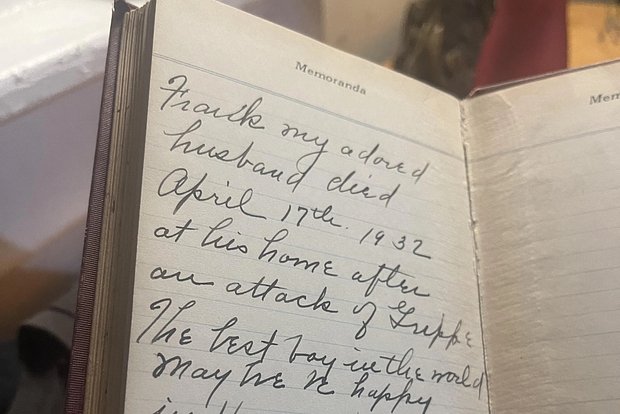 Memoranda
Mem
Frank my adored
husband died
April 17th. 1932
at his home after
an attack of Grippe
The best boy in the world
May he be happy
in